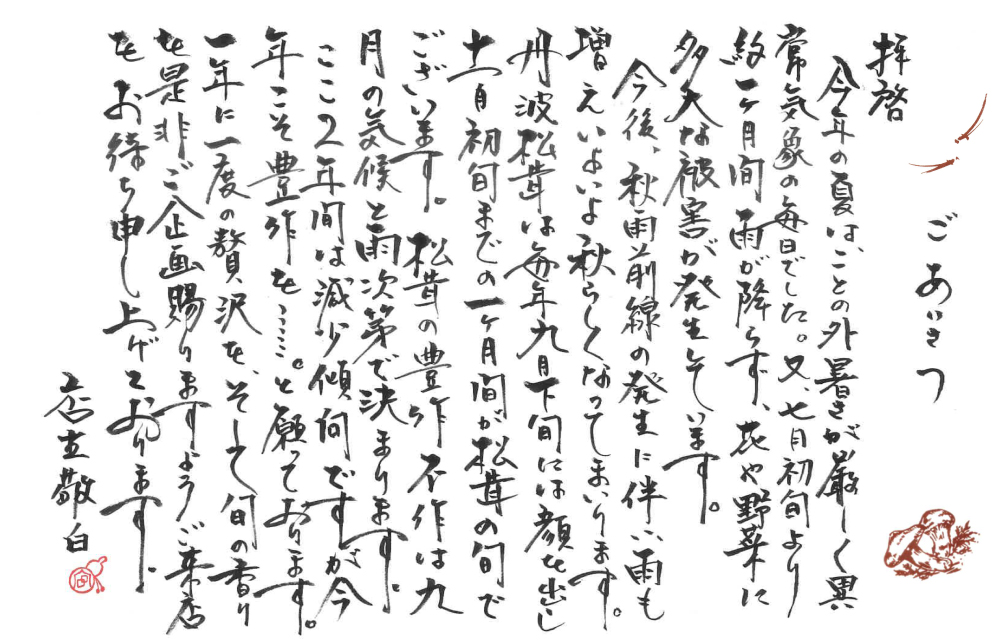 ごあいさつ
拝啓
今年の夏は、ことの外暑さが厳しく異
常気象の毎日でした。又、七月初旬より
約一ヶ月間雨が降らず、花や野菜に
多大な被害が発生しています。
今後、秋雨前線の発生に伴い雨も
増えいよいよ秋らしくなってまいります。
丹波松茸は毎年九月下旬には顔を出し
十一月初旬までの一ヶ月間が松茸の旬で
ございます。松茸の豊作不作は九
月の気候と雨次第で決まります。
ここ2年間は減少傾向ですが今
年こそ豊作を……。と願っております。
一年に一度の贅沢を、そして旬の香り
を是非ご企画賜りますようご来店
をお待ち申し上げております。
店主敬白